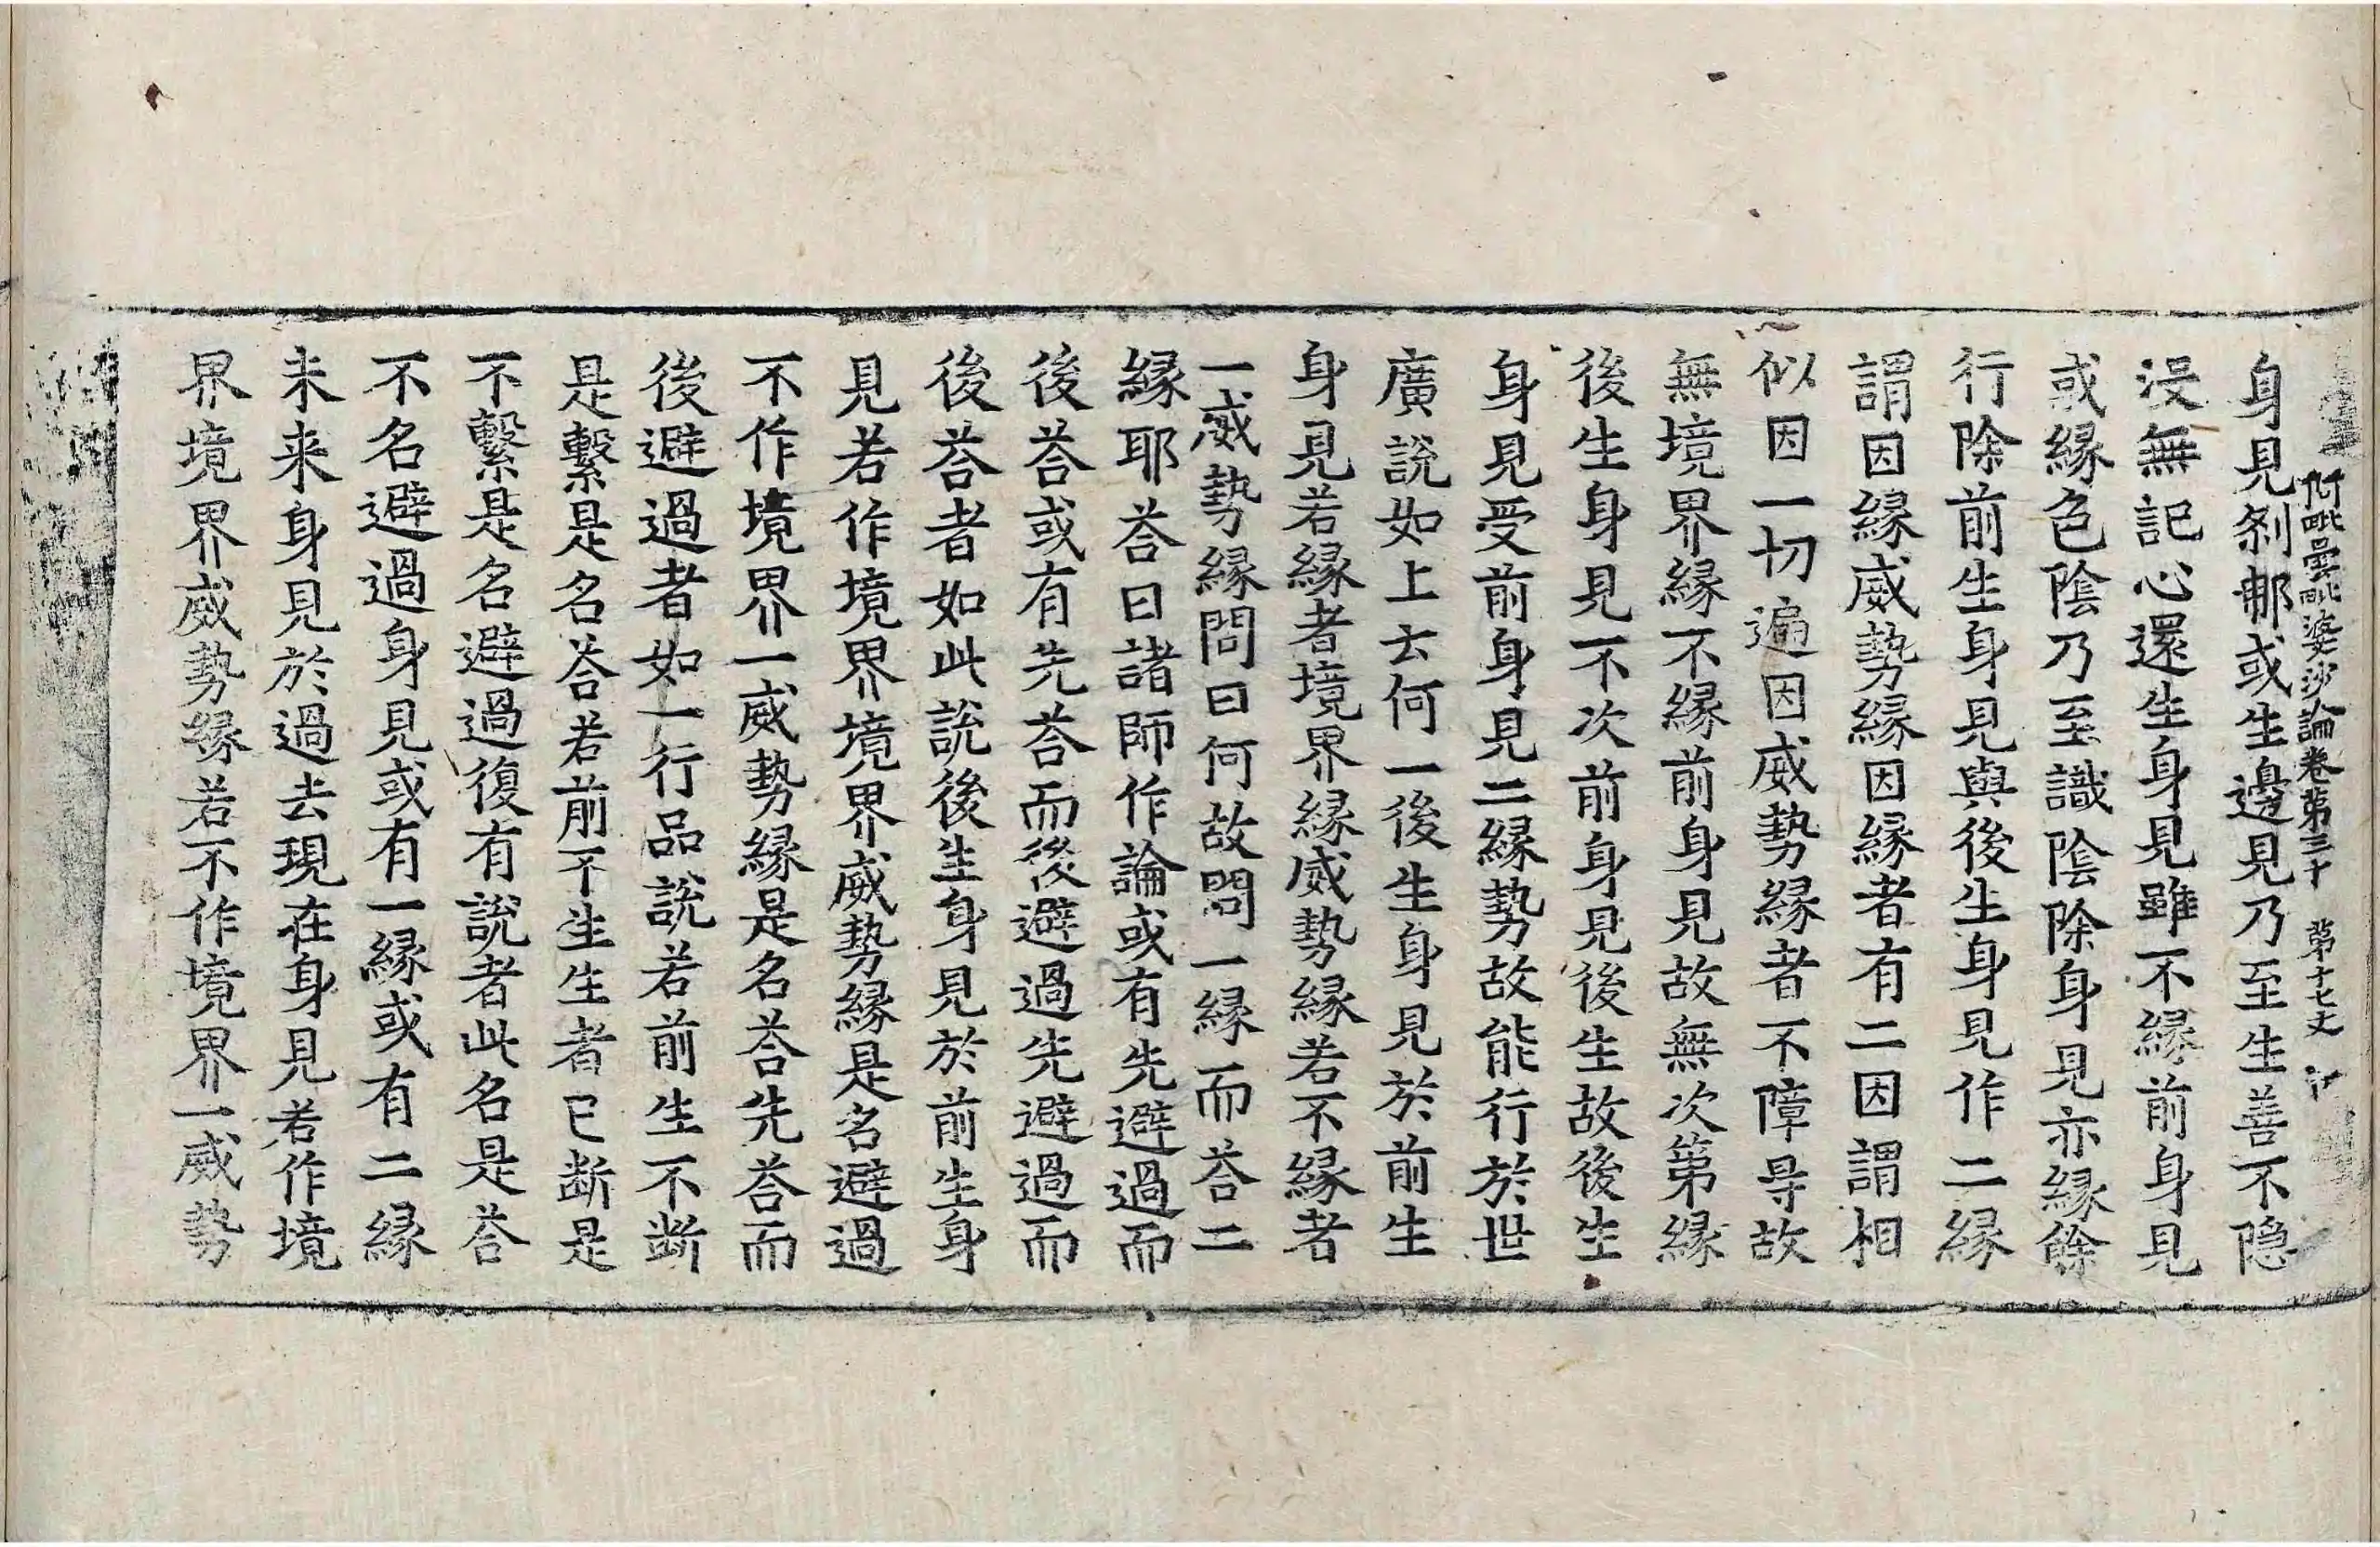 阿毗曇毗婆沙論卷第三十 第十七丈
身見剎那或生邊見乃至生善不隱
沒無記心還生身見雖不縁前身見
或縁色陰乃至識陰除身見亦縁餘
行除前生身見與後生身見作二縁
謂因縁威勢縁因縁者有二因謂相
似因一切遍因威勢縁者不障㝵故
無境界縁不縁前身見故無次第縁
後生身見不次前身見後生故後生
身見受前身見二縁勢故能行於世
廣說如上云何一後生身見於前生
身見若縁者境界縁威勢縁若不縁者
一威勢縁問曰何故問一縁而荅二
縁耶荅曰諸師作論或有先避過而
後荅或有先荅而後避過先避過而
後荅者如此說後生身見於前生身
見若作境界境界威勢縁是名避過
不作境界一威勢縁是名荅先荅而
後避過者如一行品說若前生不断
是繫是名荅若前不生生者已断是
不繫是名避過復有說者此名是荅
不名避過身見或有一縁或有二縁
未来身見於過去現在身見若作境
界境界威勢縁若不作境界一威勢